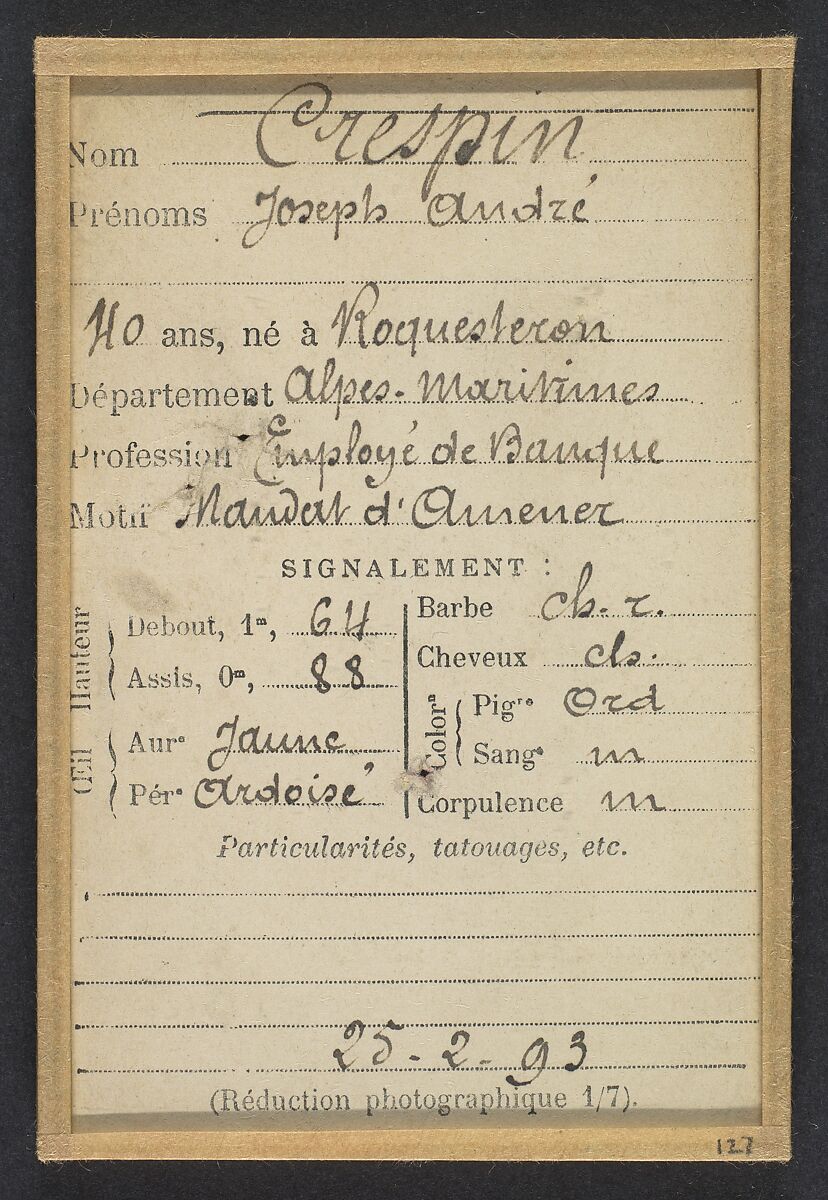 Nom Crespin
Prénoms Joseph André
40 ans, né à Roquesteron
Département Alpes-Maritimes
Profession Employé de Banque
Motif Mandat d'Amener
SIGNALEMENT :
Hauteur
Debout, 1ᵐ, 64
Assis, 0ᵐ, 88
Œil
Aurᵉ Jaune
Pérᵉ Ardoisé
Barbe ch. r.
Cheveux ch.
Colorⁿ
Pigʳᵉ Ord
Sangᵉ m
Corpulence m
Particularités, tatouages, etc.
25-2-93
(Réduction photographique 1/7).
127